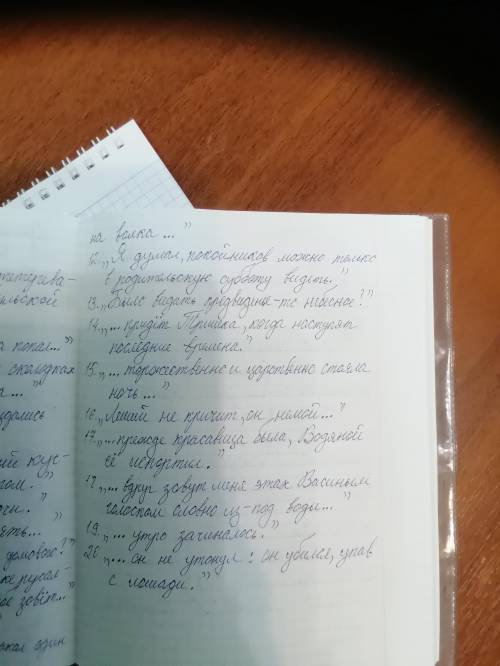 на волка..."
12. „Я думал, покойников можно только
в родительскую субботу видеть."
13. „Было видать предвиденье-то небесное?"
14. „... придёт Тришка, когда наступят
последние времена."
15. „... торжественно и царственно стояла
ночь..."
16. „Леший не кричит, он немой..."
17. „... прежде красавица была, Водяной
её испортил."
18. „... вдруг зовут меня этак Васиным
голоском словно из-под воды..."
19. „... утро зачиналось."
20. „... он не утонул: он убился, упав
с лошади."
попал..."
ять...
домового?"
зовёт..."
один